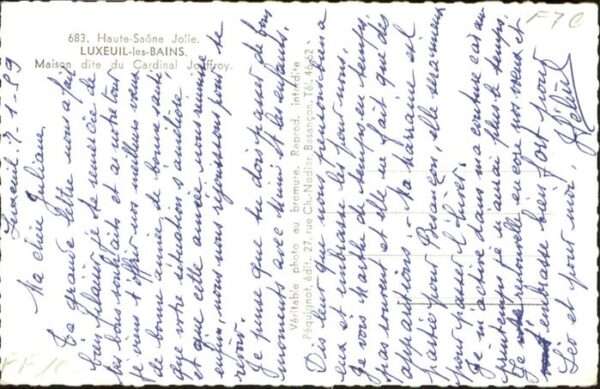 683. Haute-Saône Jolie.
LUXEUIL-les-BAINS.
Maison dite du Cardinal Jouffroy.
Véritable photo au bromure. Reprod. interdite
Péquignot, édit., 27, rue Ch.-Nodier, Besançon, Tél. 4662
F70
Luxeuil 7-1-59
Ma chère Juliane,
Ta grande lettre nous a fait
bien plaisir, je te remercie de
tes bons souhaits et à notre tour
je viens t'offrir nos meilleurs vœux
de bonne année, de bonne santé
que votre situation s'améliore
et que cette année nous
enfin nous nous réunissions pour se
revoir.
Je pense que tu dois passer de bons
moments avec Mimi et les enfants.
Dis leur que nous pensons bien à
eux et embrasse les pour nous.
Je vous parle de temps en temps,
pas souvent et elle ne fait que des
apparitions, sa marraine est
partie pour
pour passer l'hiver.
Je m'active dans ma
printemps je n'aurai plus le temps.
Je renouvelle encore nos vœux et
t'embrasse bien fort pour
Léo et pour moi
Hélène